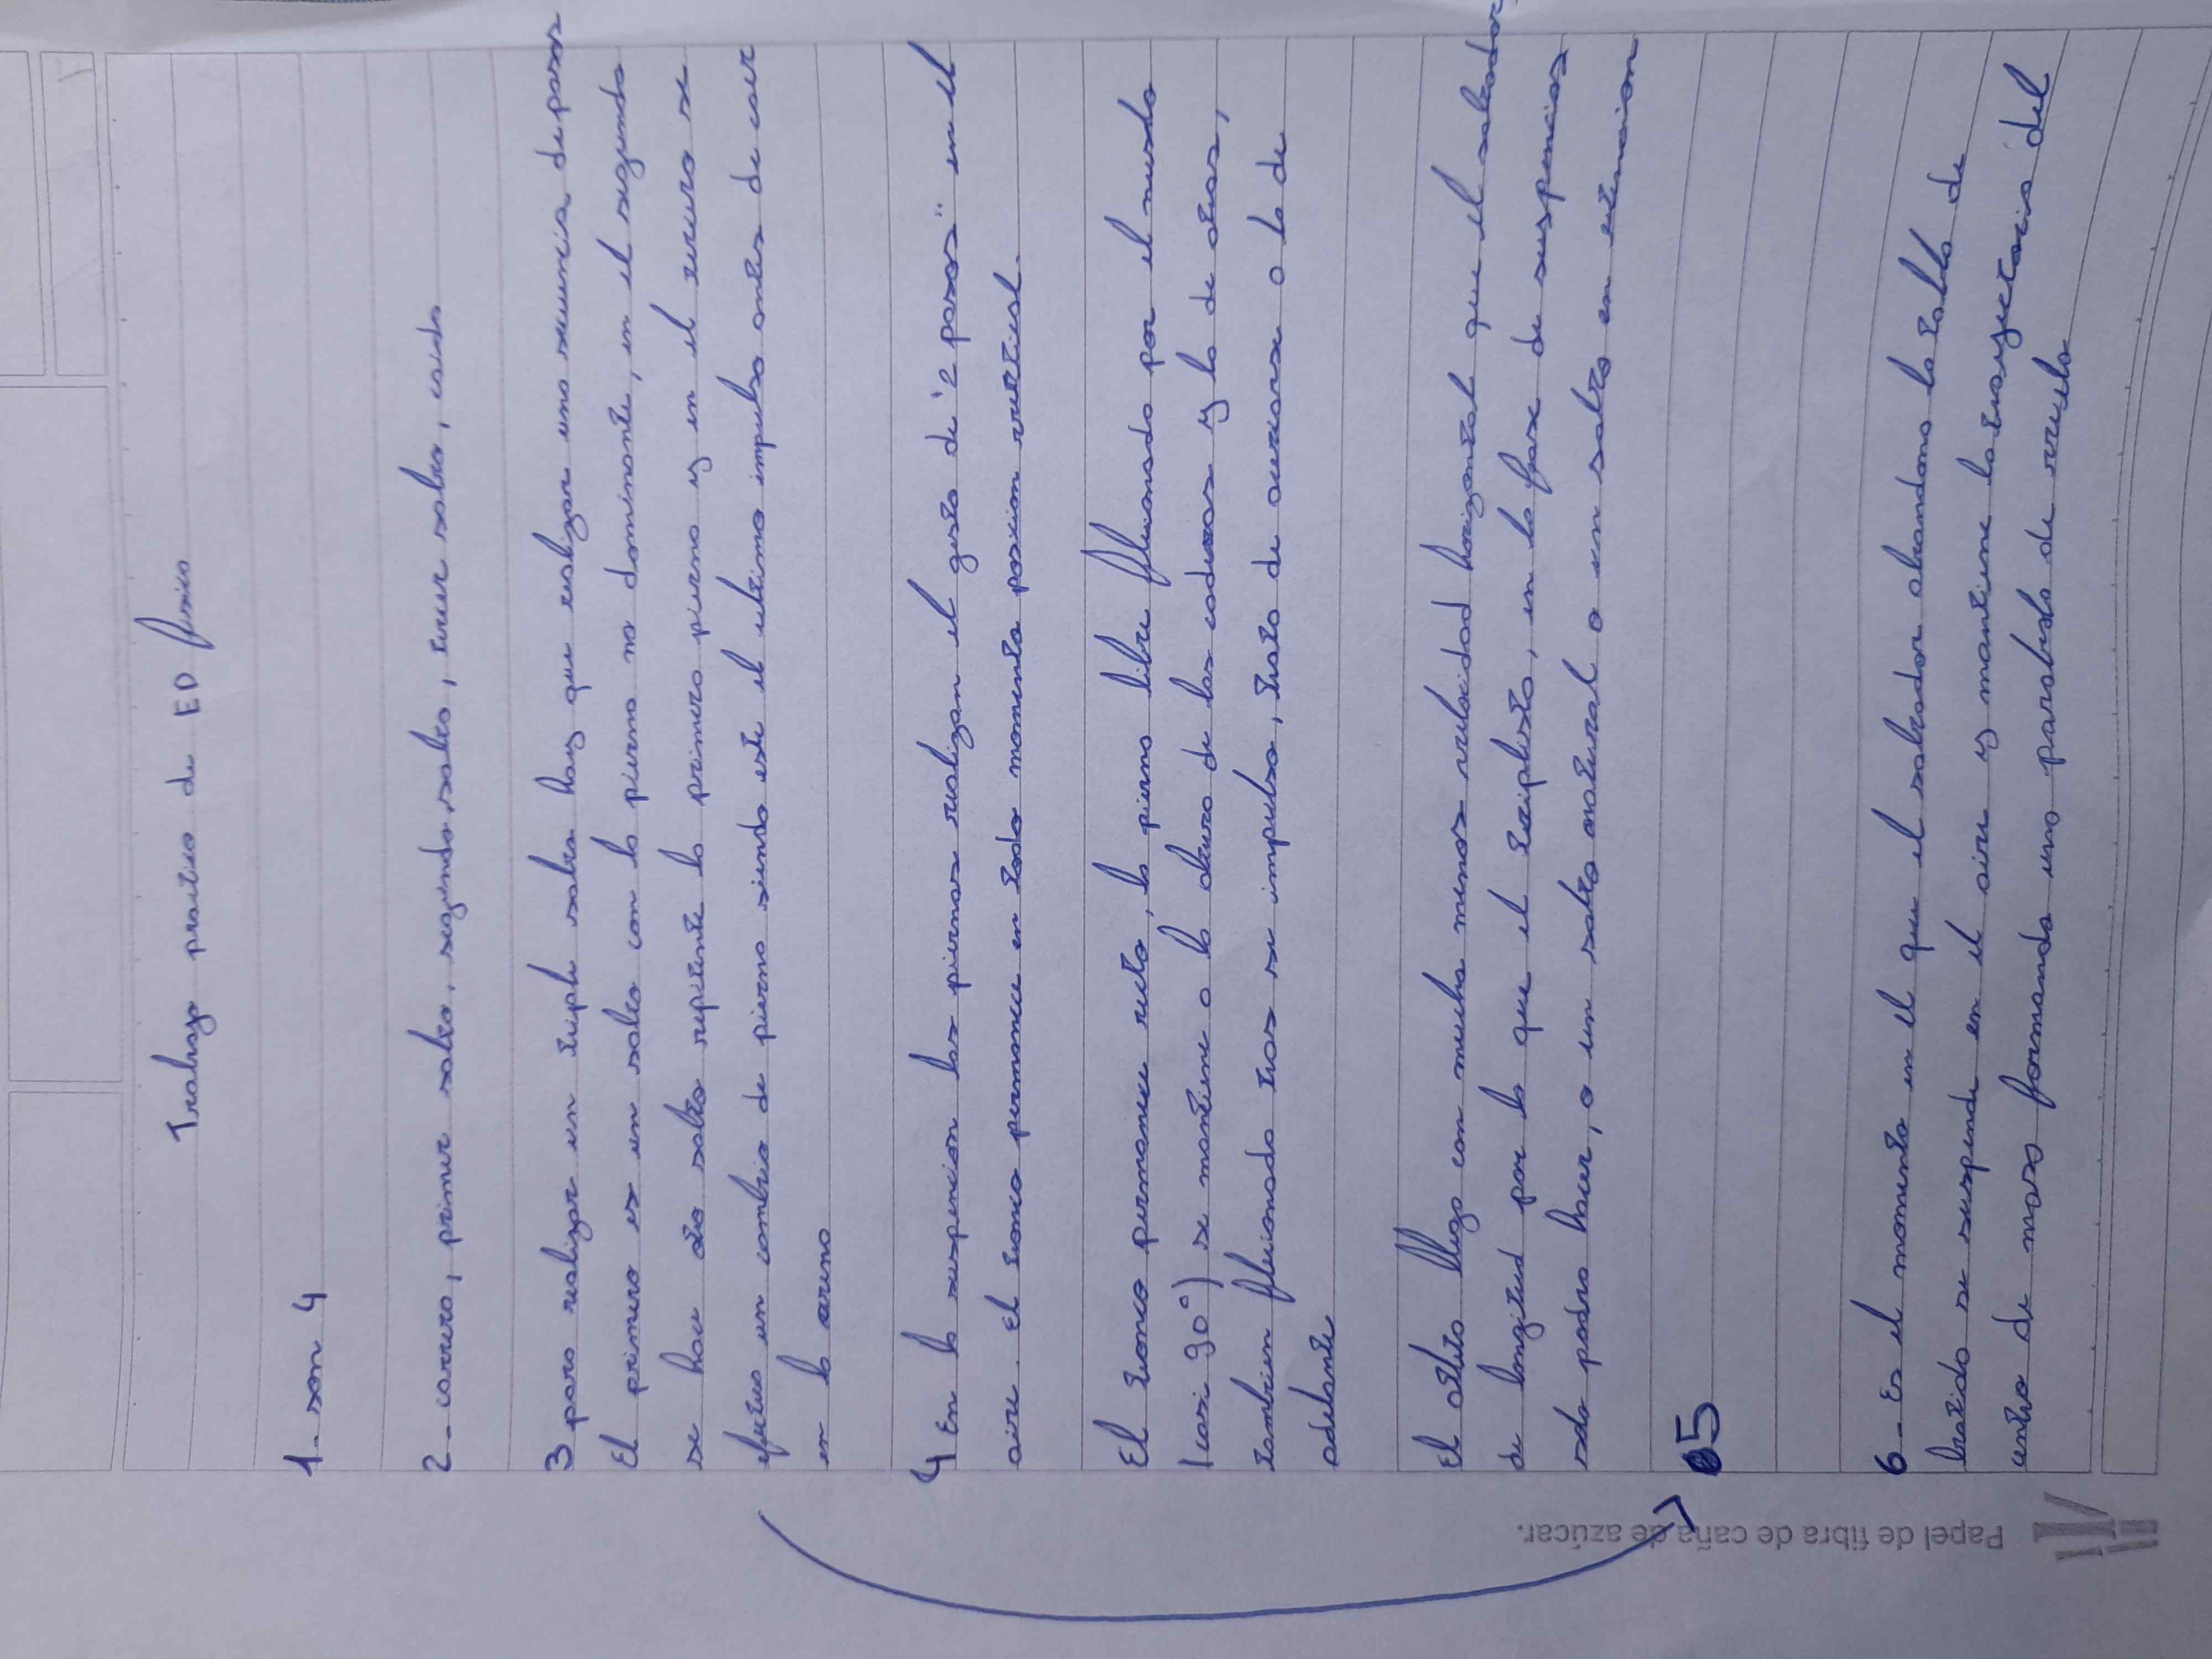 Trabajo practico de ED fisica
1- son 4
2- carrera, primer salto, segundo salto, tercer salto, caida
3 para realizar un triple salto hay que realizar una secuencia de pasos
El primero es un salto con la pierna no dominante, en el segundo
se hace otro salto repitente la primera pierna y en el tercero se
efectua un cambio de pierna siendo este el ultimo impulso antes de caer
en la arena
4 En la suspencion las piernas realizan el gesto de "2 pasos" en el
aire. El tronco permanece en todo momento posicion vertical.
El tronco permanece recto, la pierna libre flexionada por el muslo
(casi 90°) se mantiene a la altura de las caderas y la de atras,
tambien flexionada tras su impulso, trata de acercarse a la de
adelante
El atleta llega con mucha menos velocidad horizontal que el saltador
de longitud por lo que el triplista, en la fase de suspencion
solo podra hacer, o un salto natural o un salto en extencion
5
6- Es el momento en el que el saltador abandona la tabla de
batida se suspende en el aire y mantiene la trayectoria del
centro de masa formando una parabola de vuelo
Papel de fibra de caña de azúcar.